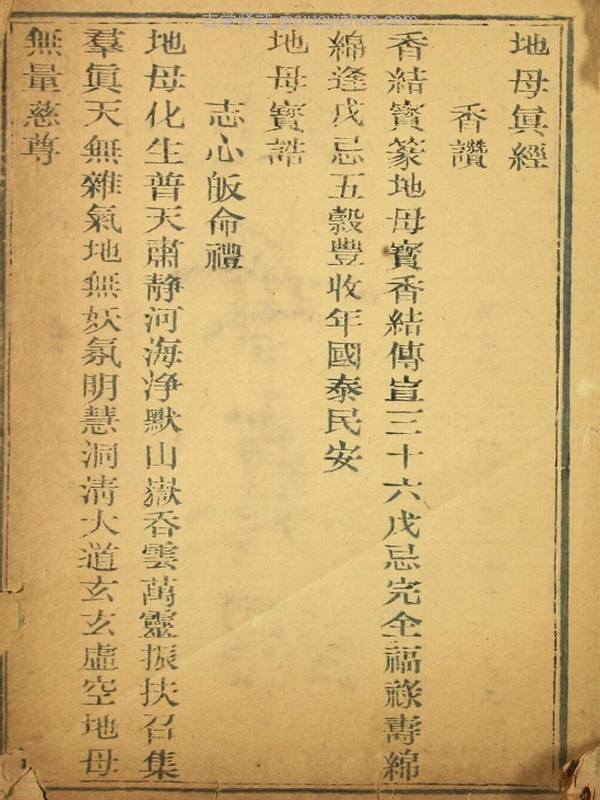 地母眞經
香讚
香結寳篆地母寳香結傳宣三十六戊忌完全福祿壽綿
綿逢戊忌五穀豐收年國泰民安
地母寳誥
志心皈命禮
地母化生普天肅静河海浄默山嶽吞雲萬靈振扶召集
羣眞天無雜氣地無妖氛明慧洞清大道玄玄虛空地母
無量慈尊